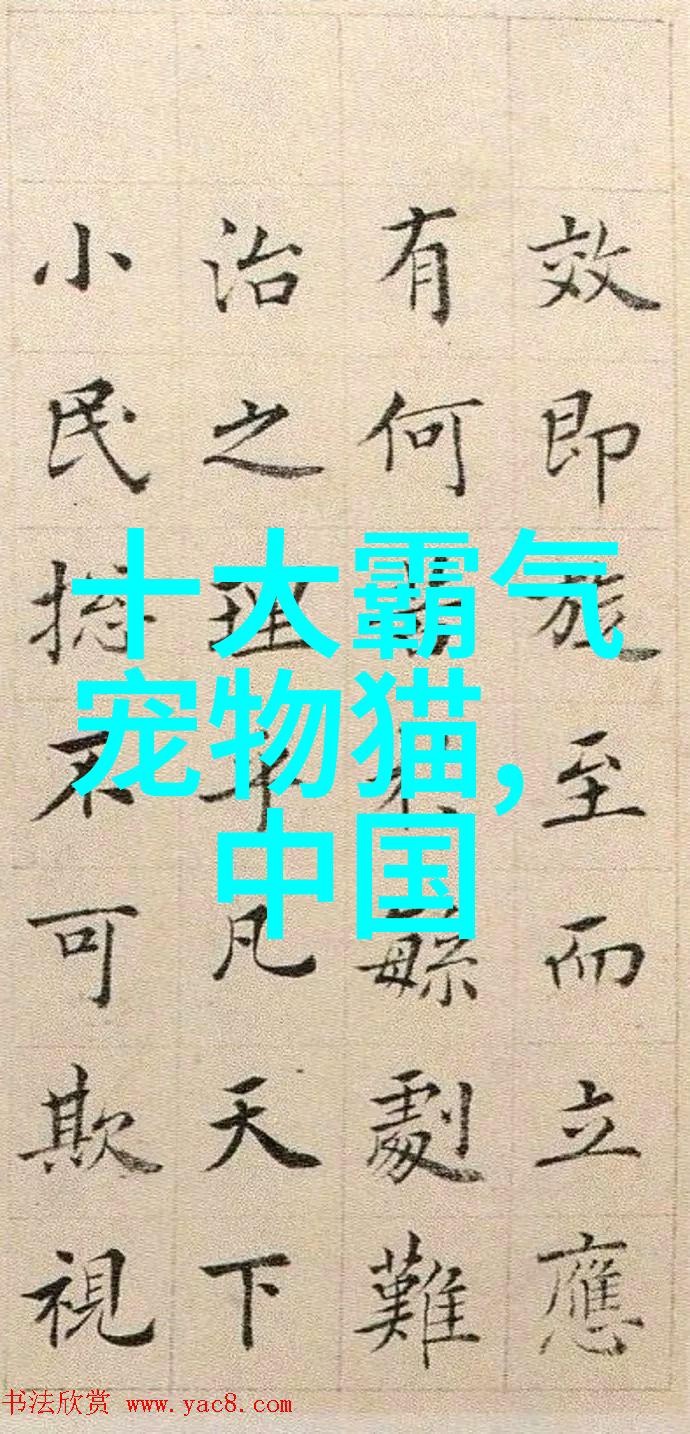 效即旋至而立應
有何緐劇難
治之理乎凡天下
小民揔不可欺視
十大霸气
宠物猫,
中国
书法欣赏 www.yac8.com